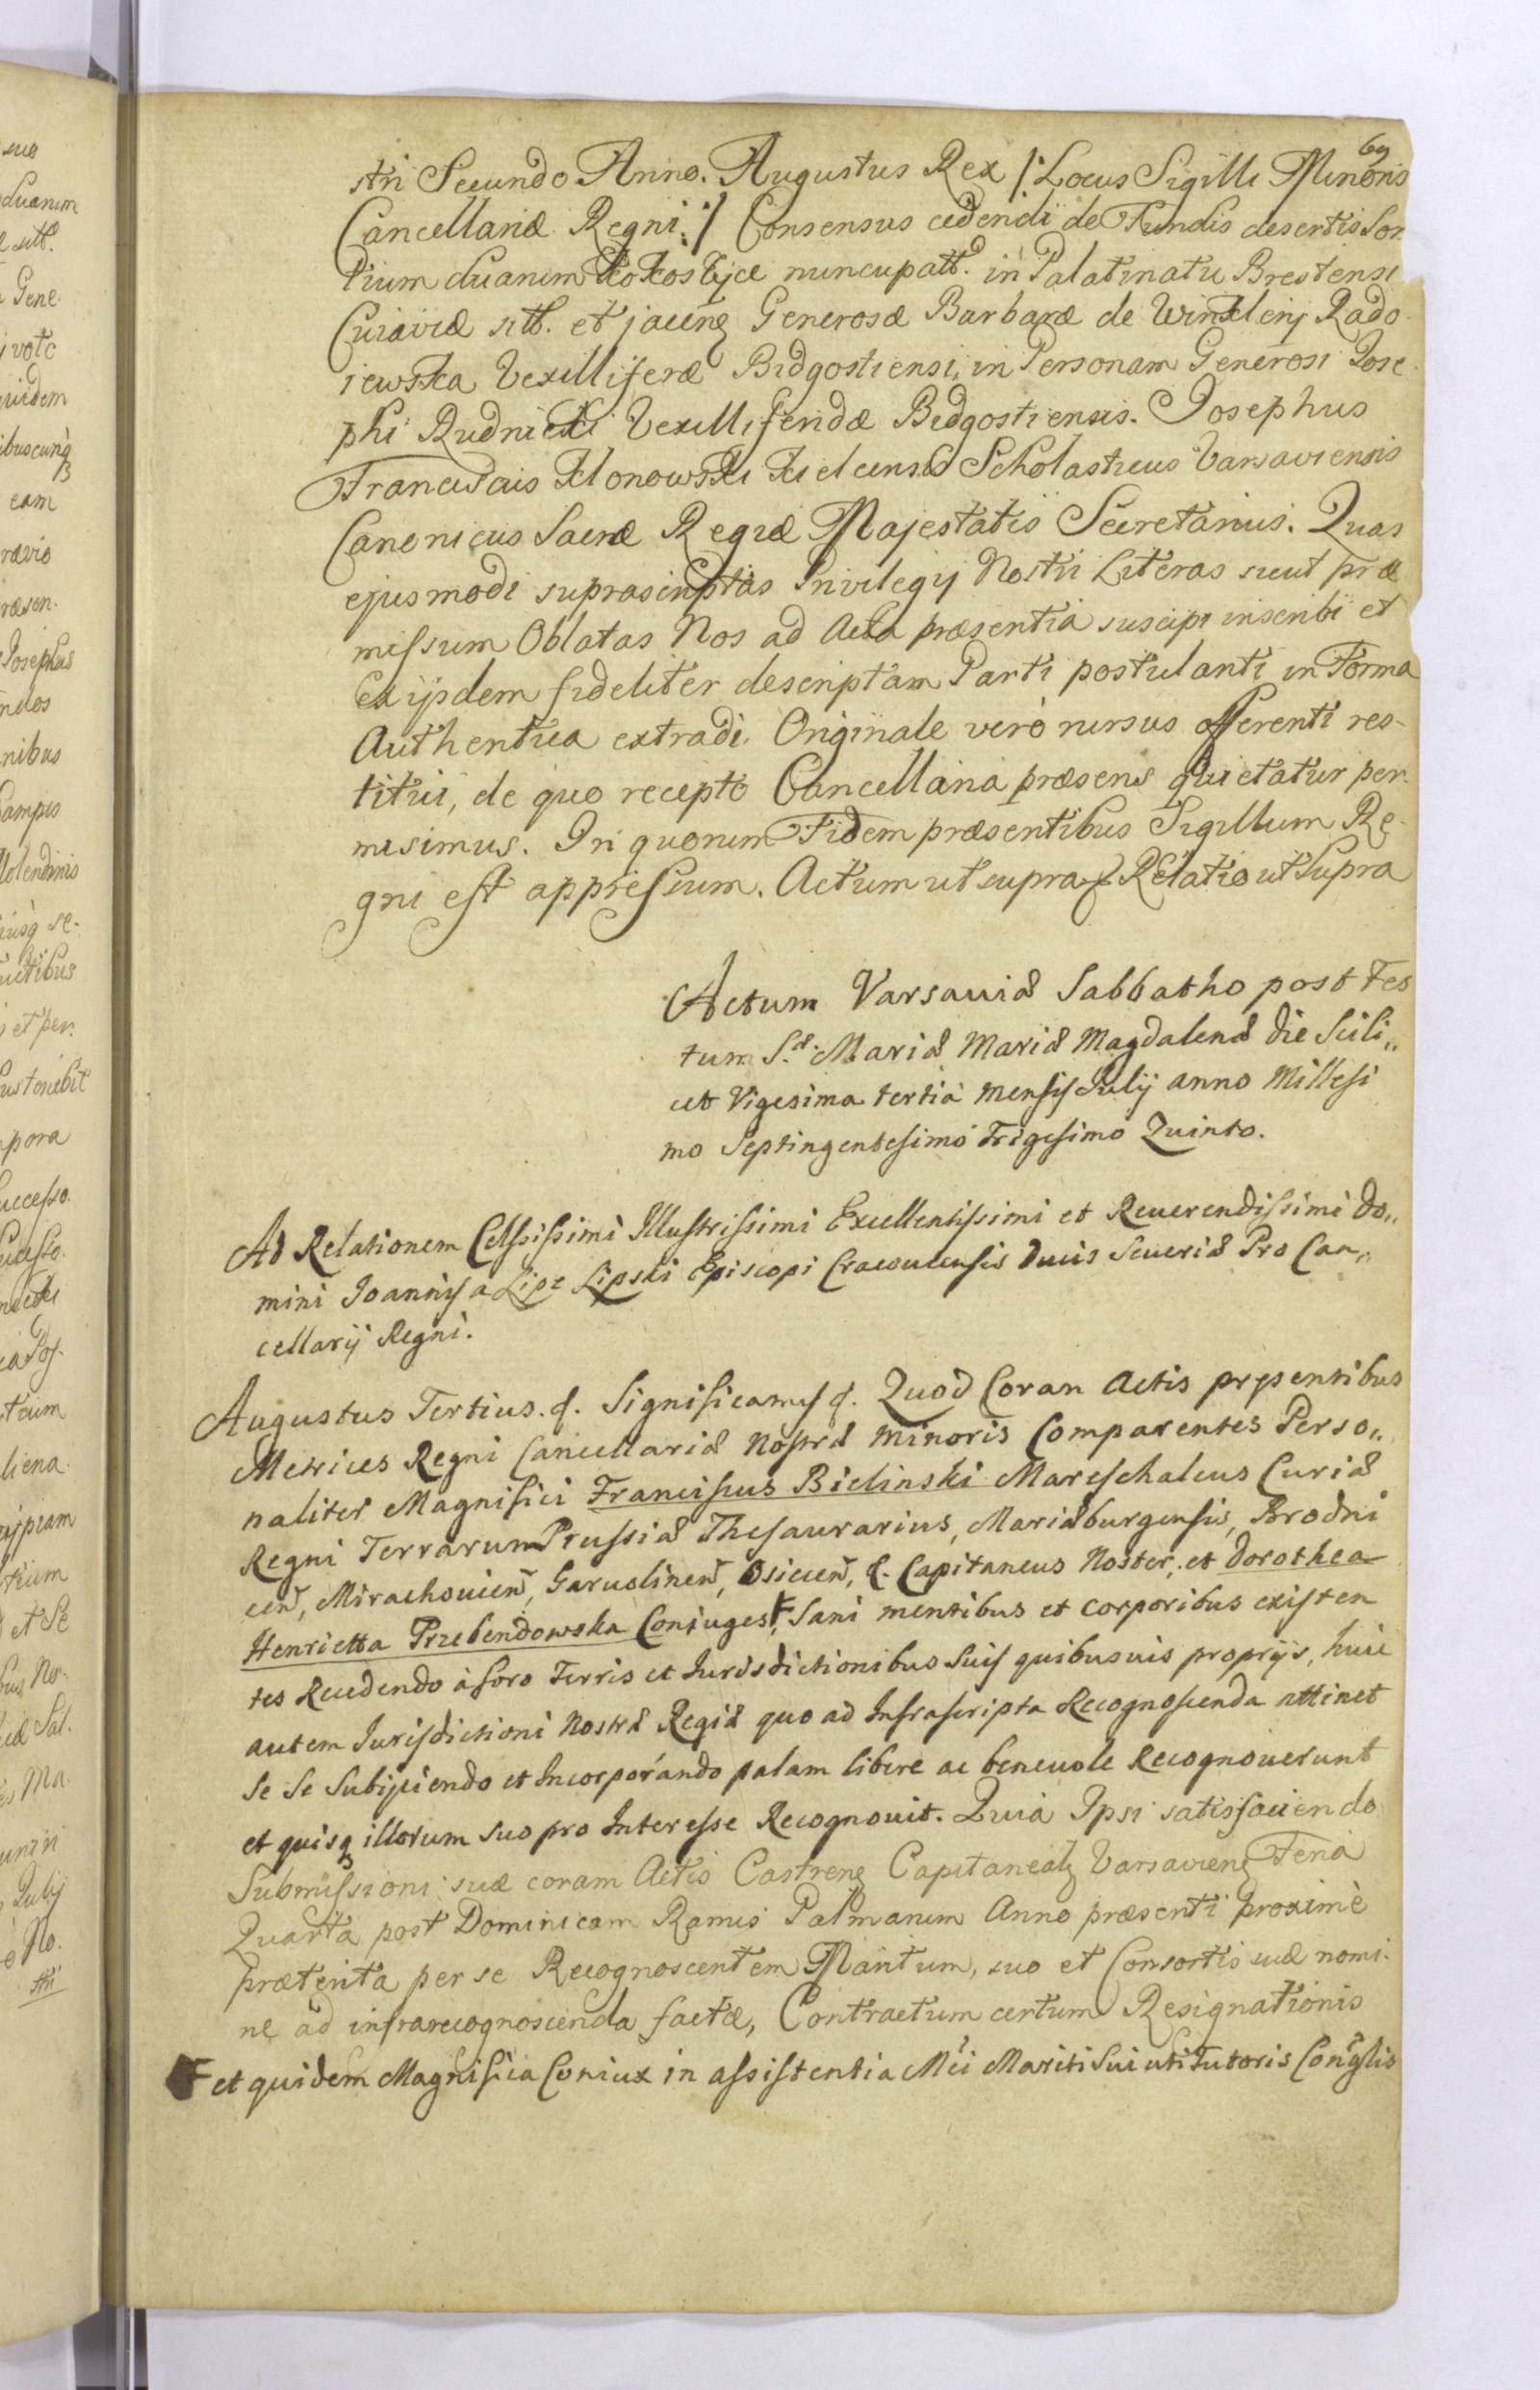 69
stri Secundo Anno. Augustus Rex /: Locus Sigilli Minoris
Cancellariæ Regni :/ Consensus cedendi de Fundis desertis Sor
tium duarum Kokoszyce nuncupatt. in Palatinatu Brestensi
Cuiaviæ sitt. et jacenꝫ Generosæ Barbaræ de Winklerij Rado
iewska Vexilliferæ Bidgostiensi, in Personam Generosi Jose
phi Rudnicki Vexilliferidæ Bidgostiensis. Josephus
Franciscus Klonowski Kielcensis Scholasticus Varsaviensis
Canonicus Sacræ Regiæ Majestatis Secretarius. Quas
ejusmodi suprascriptas Privilegij Nostri Literas sicut præ
missum Oblatas Nos ad Acta præsentia suscipi inscribi et
ex ijsdem fideliter descriptam Parti postulanti in Forma
Authentica extradi. Originale verò rursus offerenti res-
titui, de quo recepto Cancellaria præsens quietatur per-
misimus. In quorum Fidem præsentibus Sigillum Re-
gni est appressum. Actum ut supra Relatio ut Supra
Actum Varsaviæ Sabbatho post Fes
tum S.æ Mariæ Mariæ Magdalenæ die Scili„
cet Vigesima tertia Mensis Julij anno Millesi
mo Septingentesimo Trigesimo Quinto.
Ad Relationem Celsissimi Illustrissimi Excellentissimi et Reuerendissimi Do„
mini Joannis a Lipe Lipski Episcopi Cracouiensis Ducis Seueriæ Pro Can„
cellarij Regni.
Augustus Tertius. &. Significamus &. Quod Coram Actis præsentibus
Metrices Regni Cancellariæ Nostræ Minoris Comparentes Perso„
naliter Magnifici Franciscus Bielinski Mareschalcus Curiæ
Regni Terrarum Prussiæ Thesaurarius, Mariæburgensis, Brodni
cen, Mirachouien, Garuolinen, Osiecen, &. Capitaneus Noster, et Dorothea
Henrietta Przebendowska Coniuges, Sani mentibus et corporibus existen
tes Recedendo à foro Terris et Jurisdictionibus Suis quibusuis proprijs, huic
autem Jurisdictioni Nostræ Regiæ quo ad Infrascripta Recognoscenda attinet
Se Se Subijciendo et Incorporando palam libere ac beneuole Recognouerunt
et quisqꝫ illorum suo pro Interesse Recognouit. Quia Ipsi satisfaciendo
Submissioni suæ coram Actis Castrenꝫ Capitanealꝫ Varsavienꝫ Feria
Quarta post Dominicam Ramis Palmarum Anno præsenti proximè
præterita per se Recognoscentem Maritum, suo et Consortis suæ nomi-
ne ad infrarecognoscenda factæ, Contractum certum Resignationis
et quidem Magnifica Coniux in assistentia Mci Mariti Sui uti Tutoris Conglis